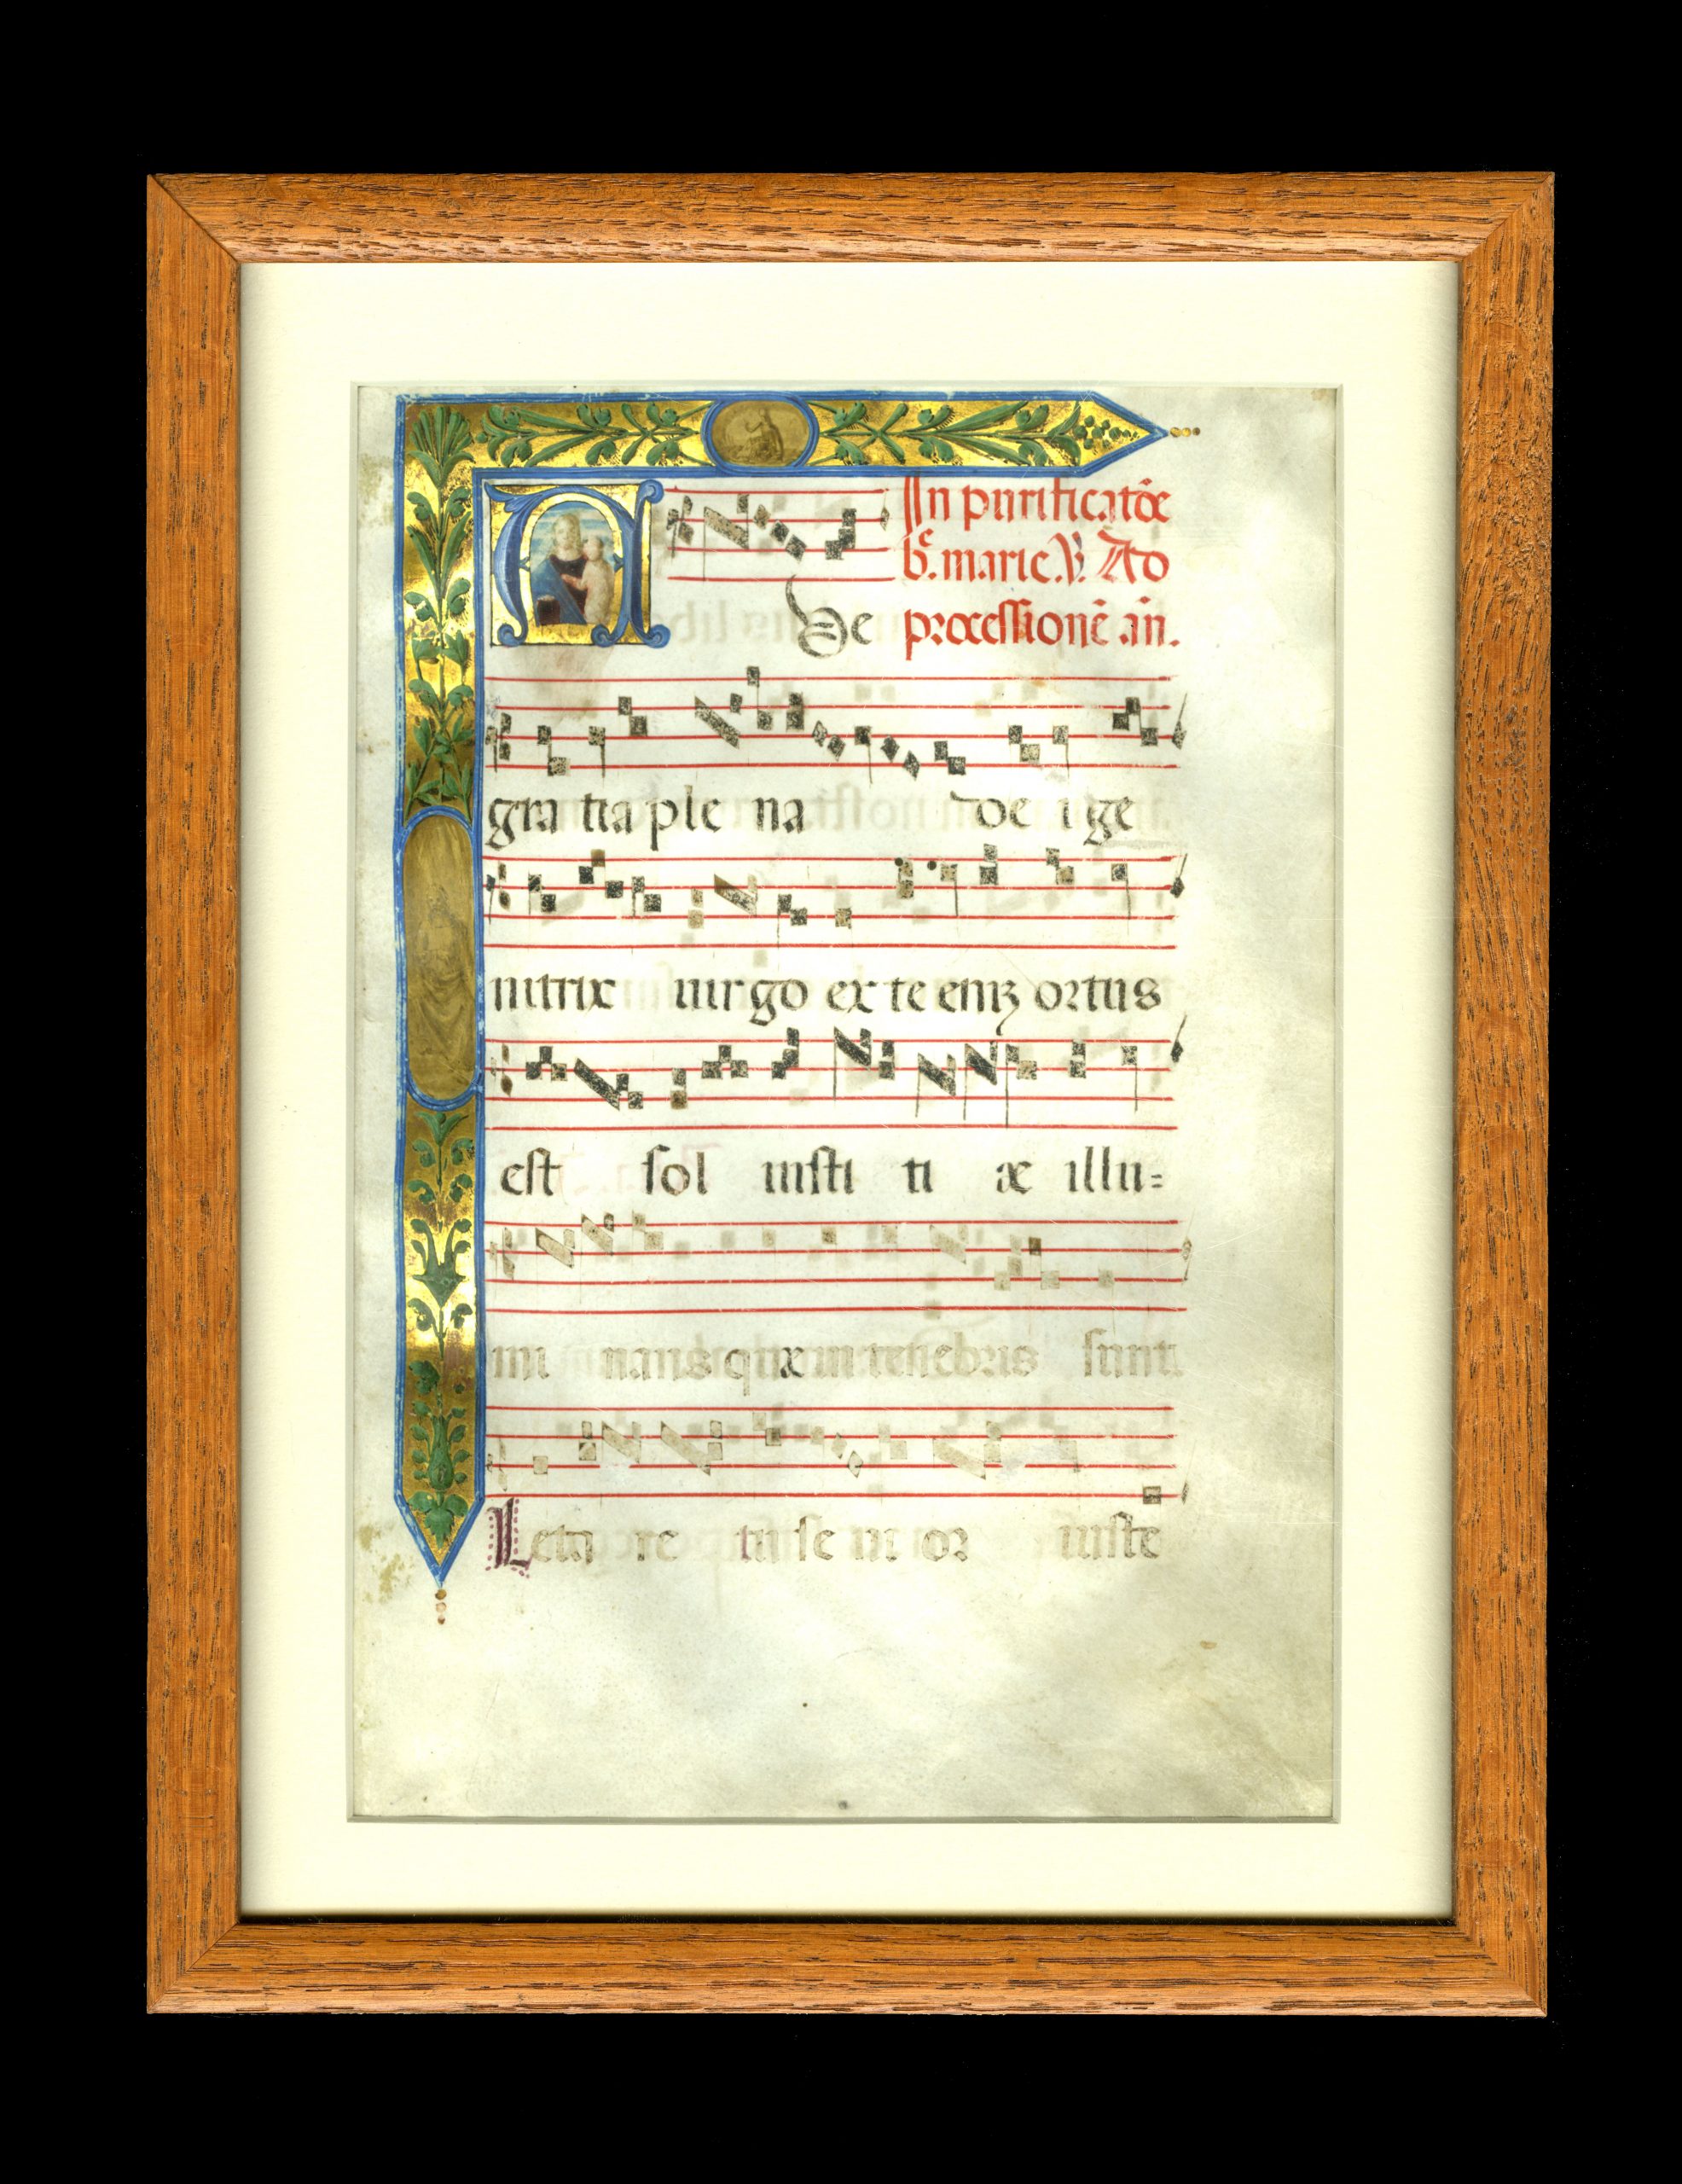 In purificatōe
bͤ. marie. V̓. Ad
processionē an̄.
A ve
gra tia ple na de i ge
nitrix uirgo ex te enīꝫ ortus
est sol iusti ti æ illu=
mi nans quæ in tenebris sunt.
Leta re tu se ni or iuste